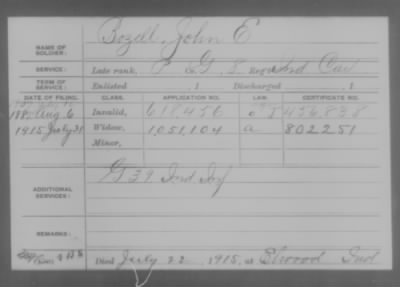 NAME OF SOLDIER: Bozell, John E
SERVICE: Late rank, P G 8 Reg't Ind Cav
TERM OF SERVICE: Enlisted , 1 Discharged , 1
DATE OF FILING. CLASS. APPLICATION NO. LAW. CERTIFICATE NO.
Aug 6 Invalid, 618,456 456,838
1915 July 31 Widow, 1,051,104 a 802251
Minor,
ADDITIONAL SERVICES: G 39 Ind Inf
REMARKS:
Died July 22, 1915, at Elwood Ind